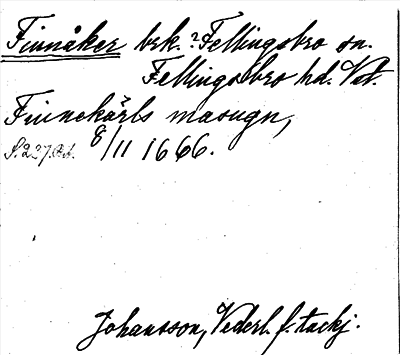 Finnåker brk. ? Fellingsbro sn.
Fellingsbro hd. Vst.
Finnekärls masugn,
8/11 1666.
Johansson, Vederl. f. tackj.